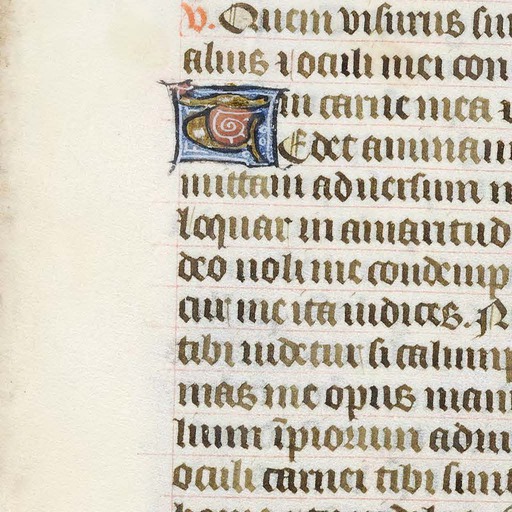 v. Quem visurus sum
alius ⁊ oculi mei con
in carne mea
Tedet animam
mittam adversum m
loquar in amaritud
deo noli me condemp
cur me ita iudices. N
tibi videtur si calump
mas me opus manu
lium īpiorum adiu
oculi carnei tibi sunt